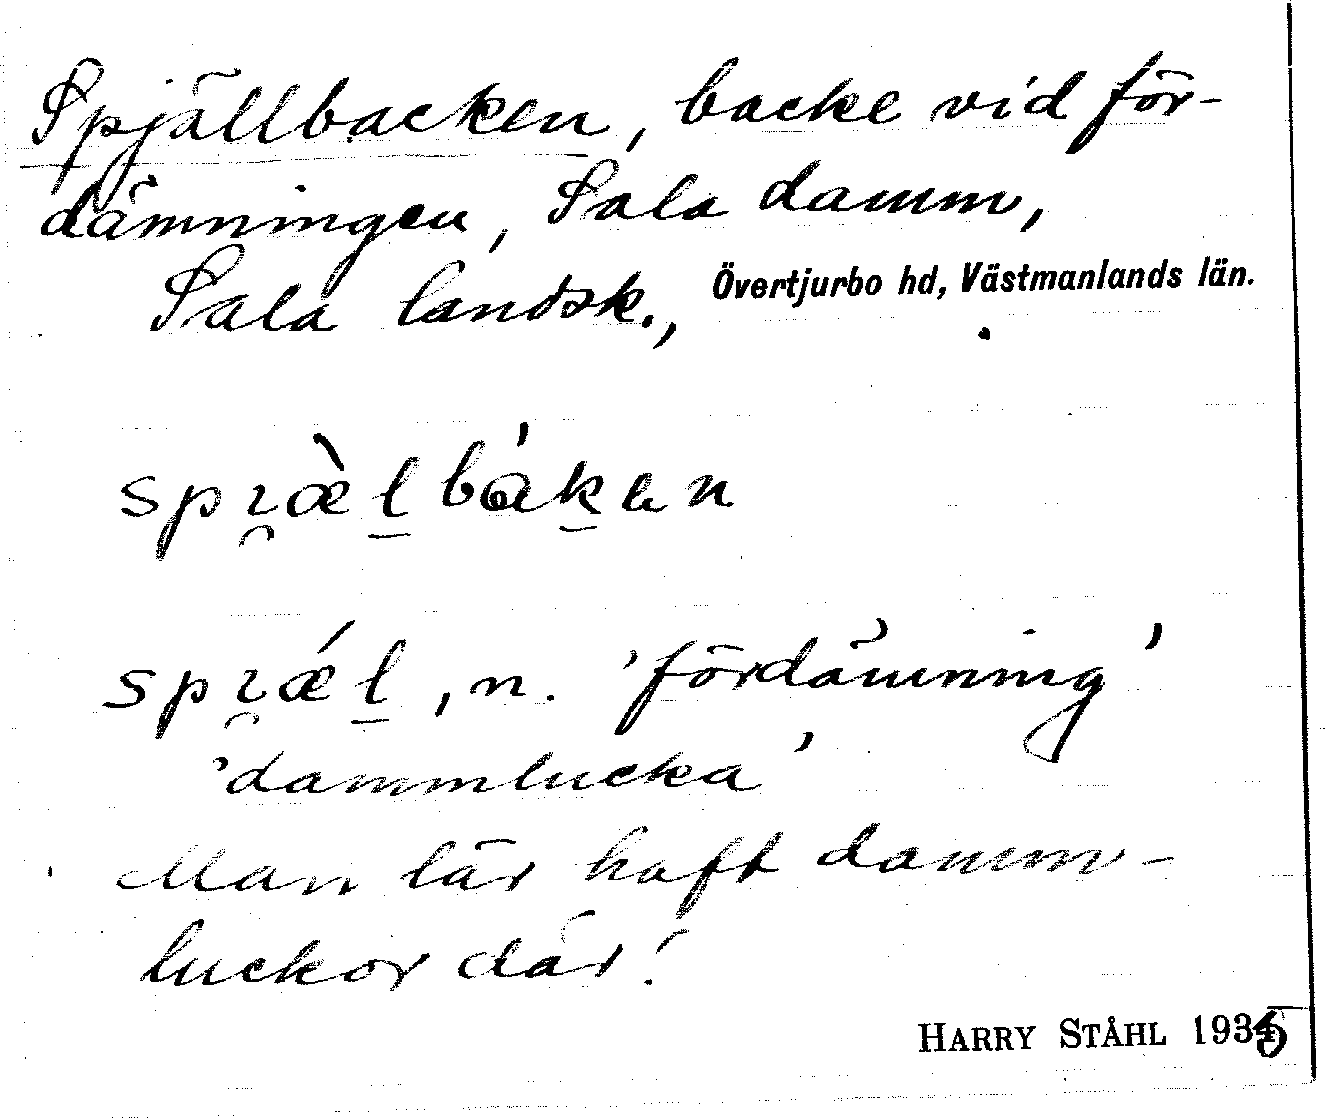 Spjällbacken, backe vid för-
dämningen, Sala damm,
Sala landsk., Övertjurbo hd, Västmanlands län.
spı̯æ̀l̠báken
spı̯ǽl̠, n. 'fördämning'
'dammlucka'
Man lär haft damm-
luckor där!
HARRY STÅHL 1935